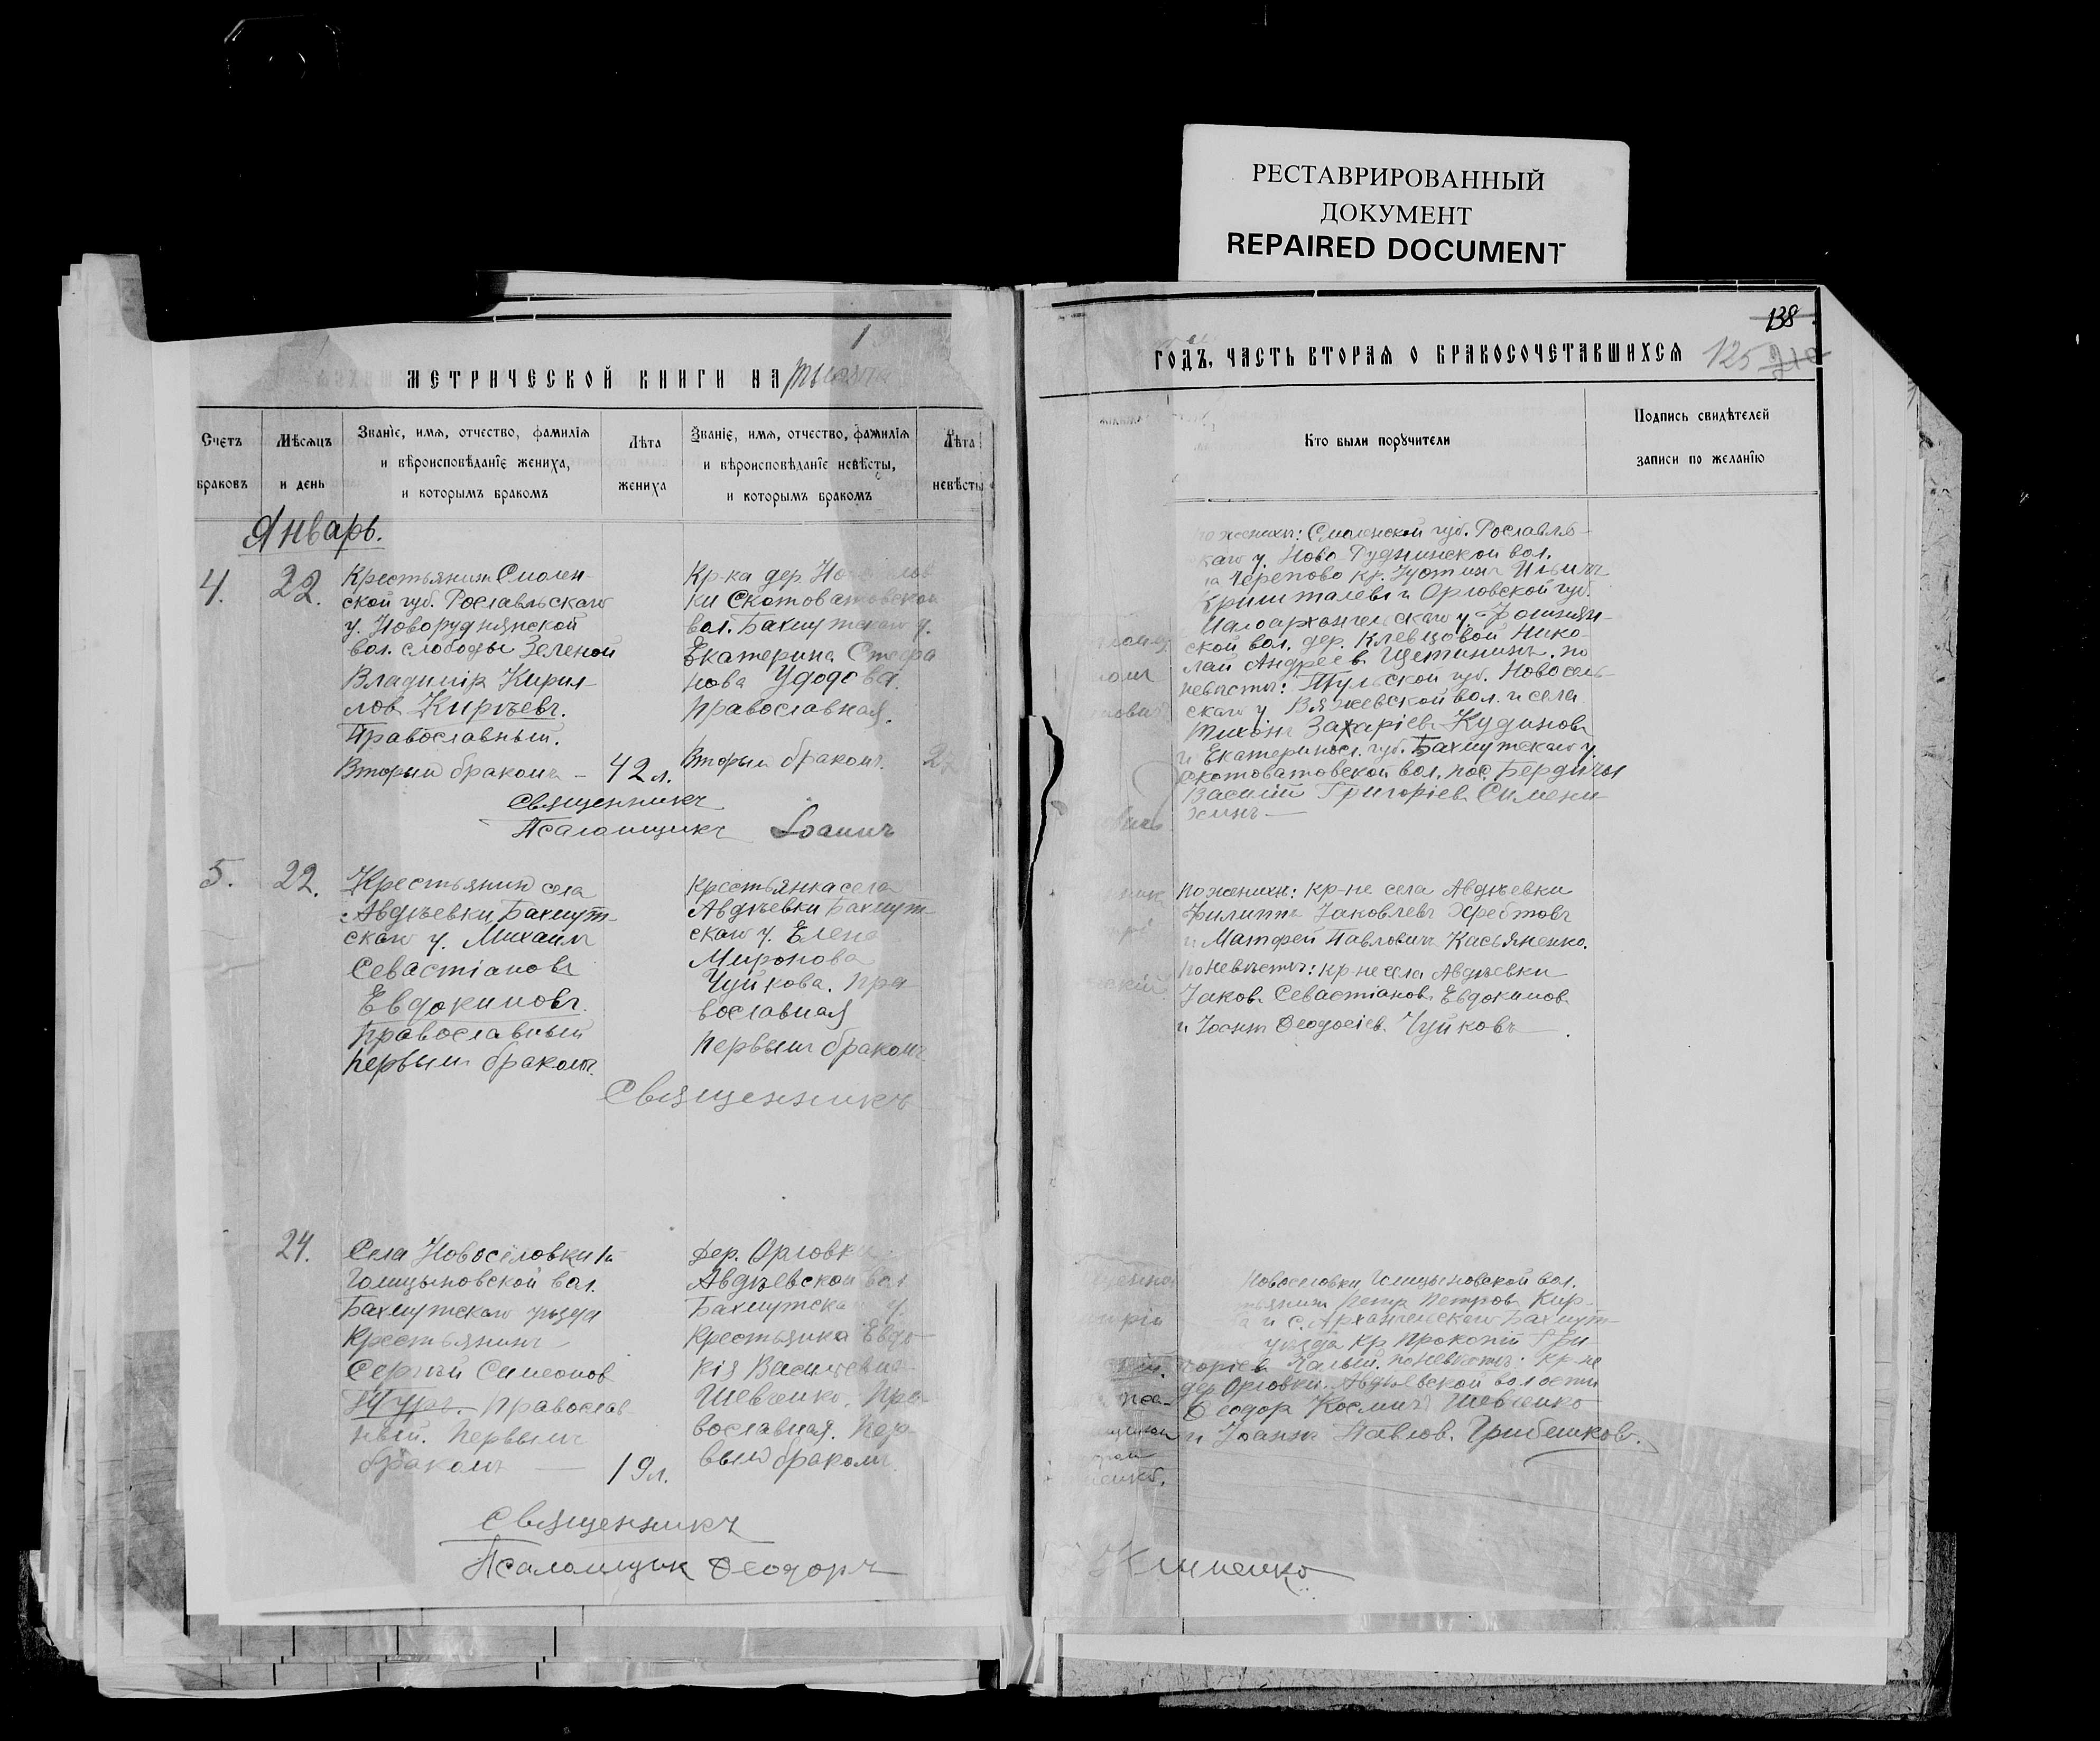 РЕСТАВРИРОВАННЫЙ
ДОКУМЕНТ
REPAIRED DOCUMENT
138
МЕТРИЧЕСКОЙ КНИГИ НА
Счетъ браковъ
Мѣсяцъ и день
Званіе, имя, отчество, фамилія
и вѣроисповѣданіе жениха,
и которымъ бракомъ
Лѣта жениха
Званіе, имя, отчество, фамилія
и вѣроисповѣданіе невѣсты,
и которымъ бракомъ
Лѣта невѣсты
Январь.
4.
22.
Крестьянинъ Смолен-
ской губ. Рославльскаго
у. Новоруднянской
вол. слободы Зеленой
Владиміръ Кирил-
лов
Православный.
Вторым бракомъ – 42 л.
Кр-ка дер.
ки Скотоватовской
вол. Бахмутскаго у.
Екатерина Стефа
нова Удодова.
православная.
Вторым бракомъ.
Священникъ
Псаломщикъ Іоаннъ
5.
22.
Крестьянин села
Авдѣевки Бахмут-
скаго у. Михаилъ
Севастіановъ
Евдокимовъ.
православный
первым бракомъ.
крестьянка села
Авдѣевки Бахмут-
скаго у. Елена
Миронова
Чуйкова. Пра
вославная
первымъ бракомъ
Священникъ
24.
Села Новосёловки
Голицыновской вол.
Бахмутскаго уѣзда
крестьянинъ
Сергѣй Симеонов
православ
ный. Первымъ
бракомъ — 19 л.
Дер. Орловки
Авдѣевской вол
Бахмутскаго у.
Крестьянка Евдо-
кія Васильева
Шевченко. Пра-
вославная. Пер
вым бракомъ.
Священникъ
Псаломщик Ѳеодоръ
ГОДЪ, ЧАСТЬ ВТОРАЯ О БРАКОСОЧЕТАВШИХСЯ
125
Кто были поручители
Подпись свидѣтелей
записи по желанію
по женихѣ: Смоленской губ. Рославль-
скаго у. Ново Руднянской вол.
и Орловской губ.
Малоархангельскаго у.
ской вол. дер. Клевцовой Нико-
лай Андреев Щетининъ. по
невѣстѣ: Тульской губ. Новосель-
скаго у Вяжевской вол. и села
Тихонъ Захаріев Кудинов
и Екатеринос. губ. Бахмутскаго у.
Скотоватовской вол. пос. Бердичи
Василій Григоріев
по женихѣ: кр-не села Авдѣевки
Филиппъ Іаковлевъ Хребтовъ
и Матфей Павловичъ Касьяненко.
по невѣстѣ: кр-не села Авдѣевки
Іаков Севастіанов Евдокимов
и Іоанн Ѳеодосіев Чуйковъ
Новосёловки Голицыновской вол.
Петр Петров Кир-
и с. Архангельскаго Бахмут-
уѣзда кр Прокопій Гри-
горіев по невѣстѣ: кр-не
дер Орловки Авдѣевской волости
Ѳеодор Космич Шевченко
и Іоаннъ Павлов. Грибенковъ.